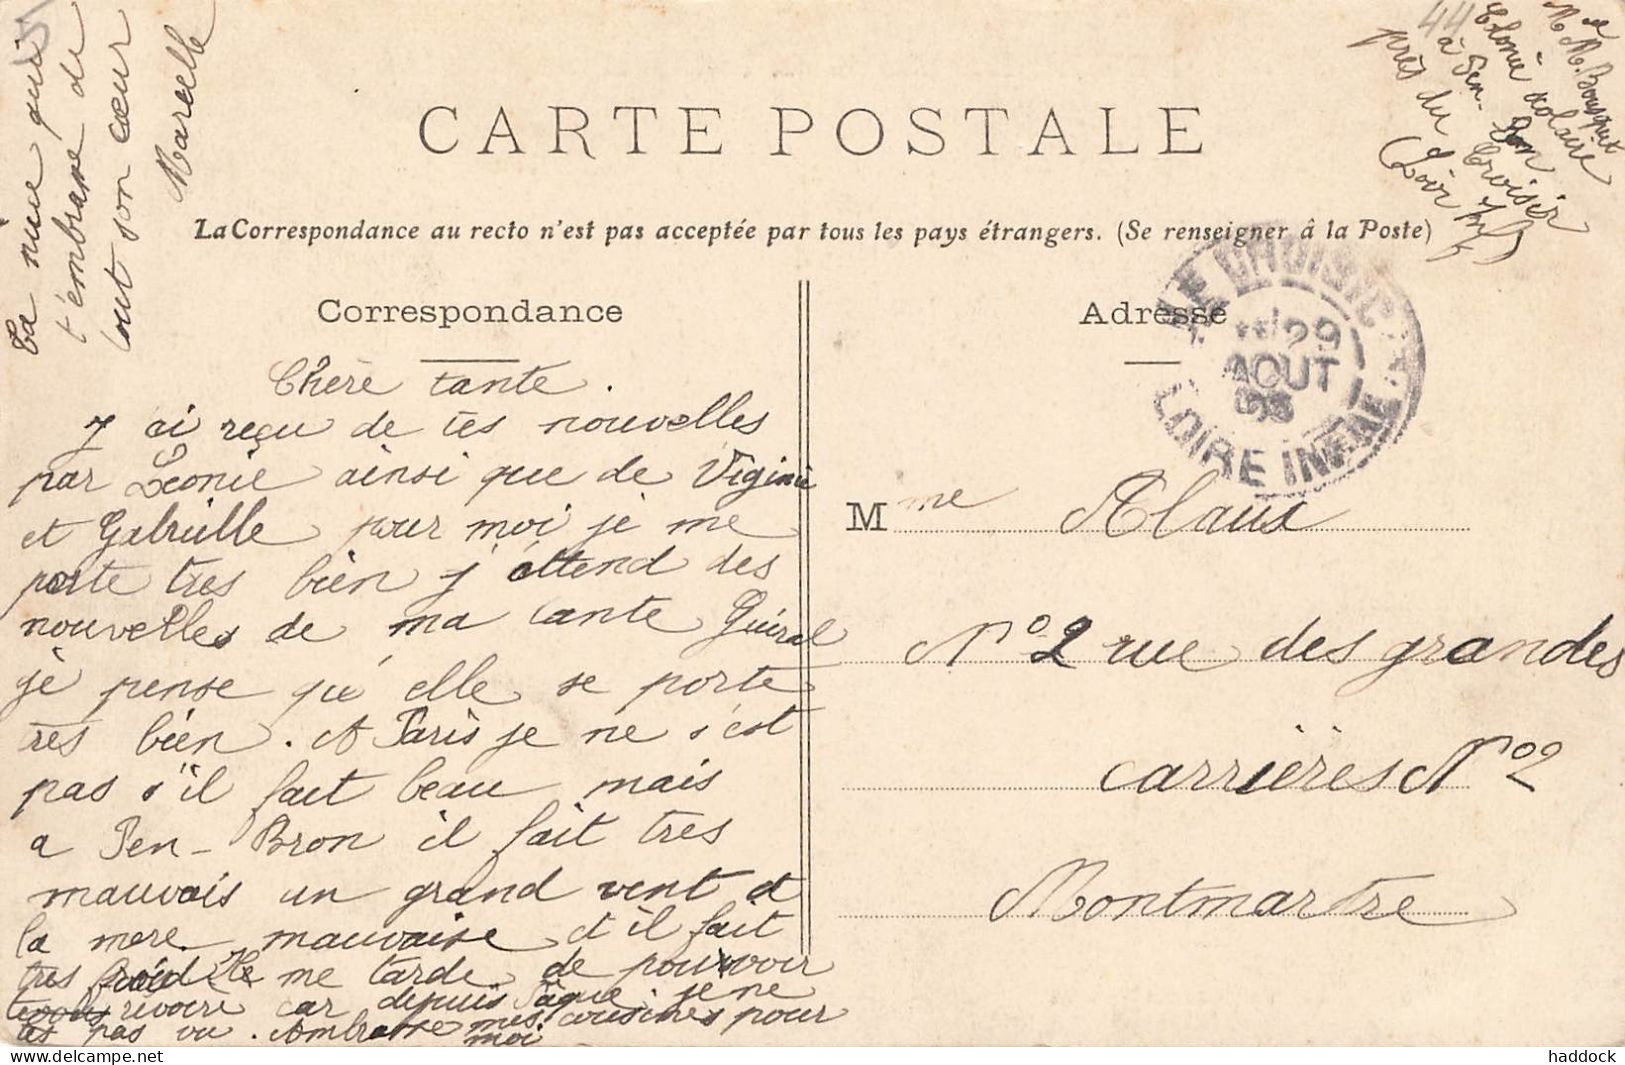 CARTE POSTALE
La Correspondance au recto n'est pas acceptée par tous les pays étrangers. (Se renseigner à la Poste)
Correspondance
Adresse
Chère tante.
J ai reçu de tes nouvelles
par Léonie ainsi que de Viginie
et Gabrielle pour moi je me
porte tres bien j'attend des
nouvelles de ma tante Guiral
je pense qu'elle se porte
tres bien. A Paris je ne s'est
pas s'il fait beau mais
a Pen-Bron il fait tres
mauvais un grand vent et
la mere mauvaise et il fait
tres froid Il me tarde de pouvoir
revoire car depuis Paque je ne
tes pas vu. Ambrasse mes cousines pour
moi
Ta niece qui
t'embrasse de
tout son cœur
Marcelle
44
Melle M. Bousquet
Colonie scolaire
à Pen-Bron
près du Croisic
(Loire Inf)
LE CROISIC
29
AOUT
08
LOIRE INFRE
Mme Alaux
N° 2 rue des grandes
carrières N° 2
Montmartre
haddock